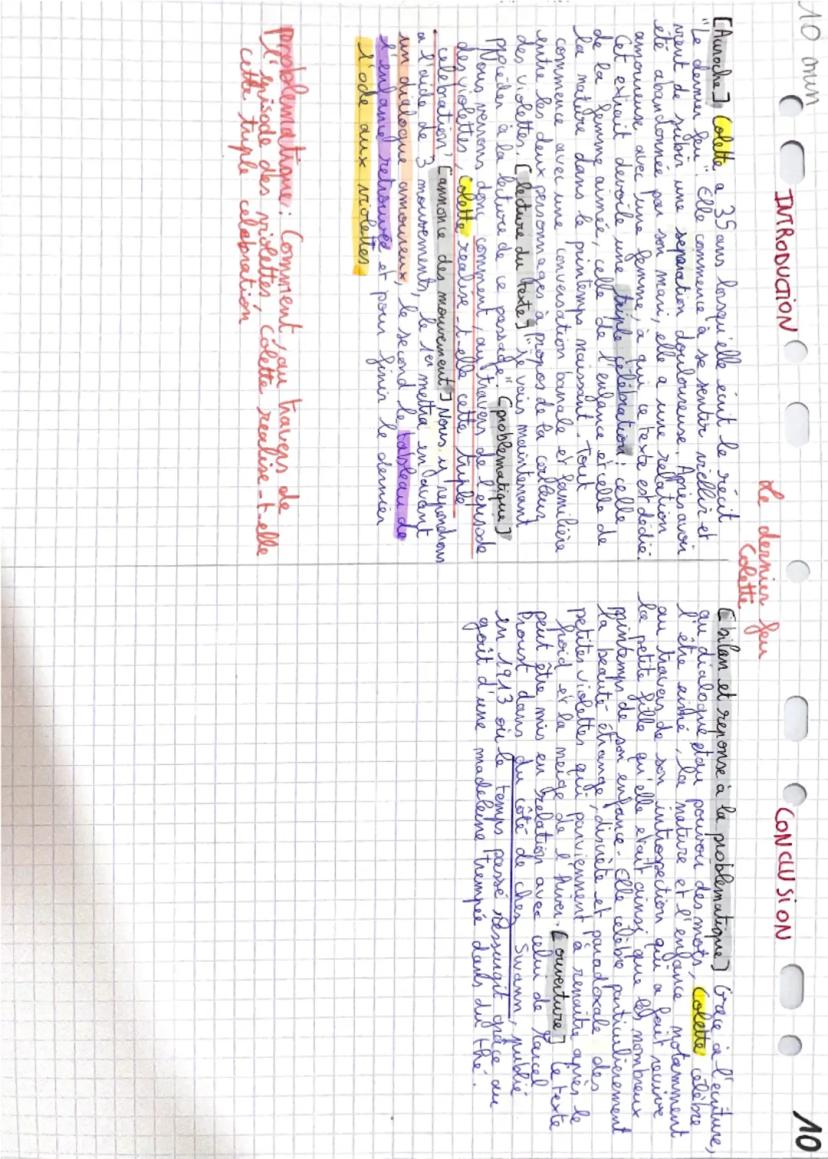 10 min
Le dernier feu
Colette
10
INTRODUCTION
[Accroche] Colette a 35 ans lorsqu'elle écrit le récit
"Le dernier feu". Elle commence à se sentir vieillir et
vient de subir une separation douloureuse. Après avoir
été abandonnée par son mari, elle a une relation
amoureuse avec une femme, à qui ce texte est dédié.
Cet extrait devoile une triple célébration : celle
de la femme aimée, celle de l'enfance et celle de
la nature dans le printemps naissant. Tout
commence avec une conversation banale et familière
entre les deux personnages à propos de la couleur
des violettes. [lecture du texte] "Je vais maintenant
procéder à la lecture de ce passage". [problematique]
Nous verrons donc comment, au travers de l'épisode
des violettes, Colette realise t-elle cette triple
celebration. [annonce des mouvement] Nous y repondrons
a l'aide de 3 mouvements, le 1er mettra en avant
un dialogue amoureux, le second le tableau de
l'enfance retrouvée et pour finir le dernier
l'ode aux violettes
Problematique : Comment, au travers de
l'episode des violettes, Colette realise-t-elle
cette triple celebration
CONCLUSION
[bilan et reponse à la problematique] Grâce à l'écriture,
au dialogue et au pouvoir des mots, Colette célèbre
l'être aimé, la nature et l'enfance notamment
au travers de son introspection qui a fait revivre
la petite fille qu'elle était ainsi que les nombreux
printemps de son enfance. Elle célèbre particulierement
la beauté étrange, discrète et paradoxale des
petites violettes qui parviennent à renaitre après le
froid et la neige de l'hiver. [ouverture] Ce texte
peut être mis en relation avec celui de Marcel
Proust dans du côté de chez Swann, publié
en 1913 où le temps passé ressurgit grâce au
goût d'une madeleine trempée dans du thé.